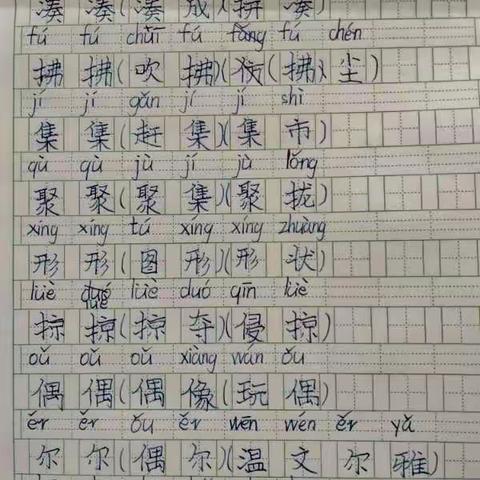 凑 凑 ( 成 ) ( 拼 凑 )
fú fú chuī fú fǎng fú chén
拂 拂 ( 吹 拂 ) ( 拂 ) 尘 )
jí jí gǎn jí jí shì
集 集 ( 赶 集 ) ( 集 市 )
qù qù jù jí jù lǒng
聚 聚 ( 聚 集 ) ( 聚 拢 )
xíng xíng tú xíng xíng zhuàng
形 形 ( 图 形 ) ( 形 状 )
lüè lüè lüè duó qīn lüè
掠 掠 ( 掠 夺 ) ( 侵 掠 )
oǔ oǔ oǔ xiàng wán ǒu
偶 偶 ( 偶 像 ) ( 玩 偶 )
ěr ěr ǒu ěr wēn wén ěr yǎ
尔 尔 ( 偶 尔 ) ( 温 文 尔 雅 )